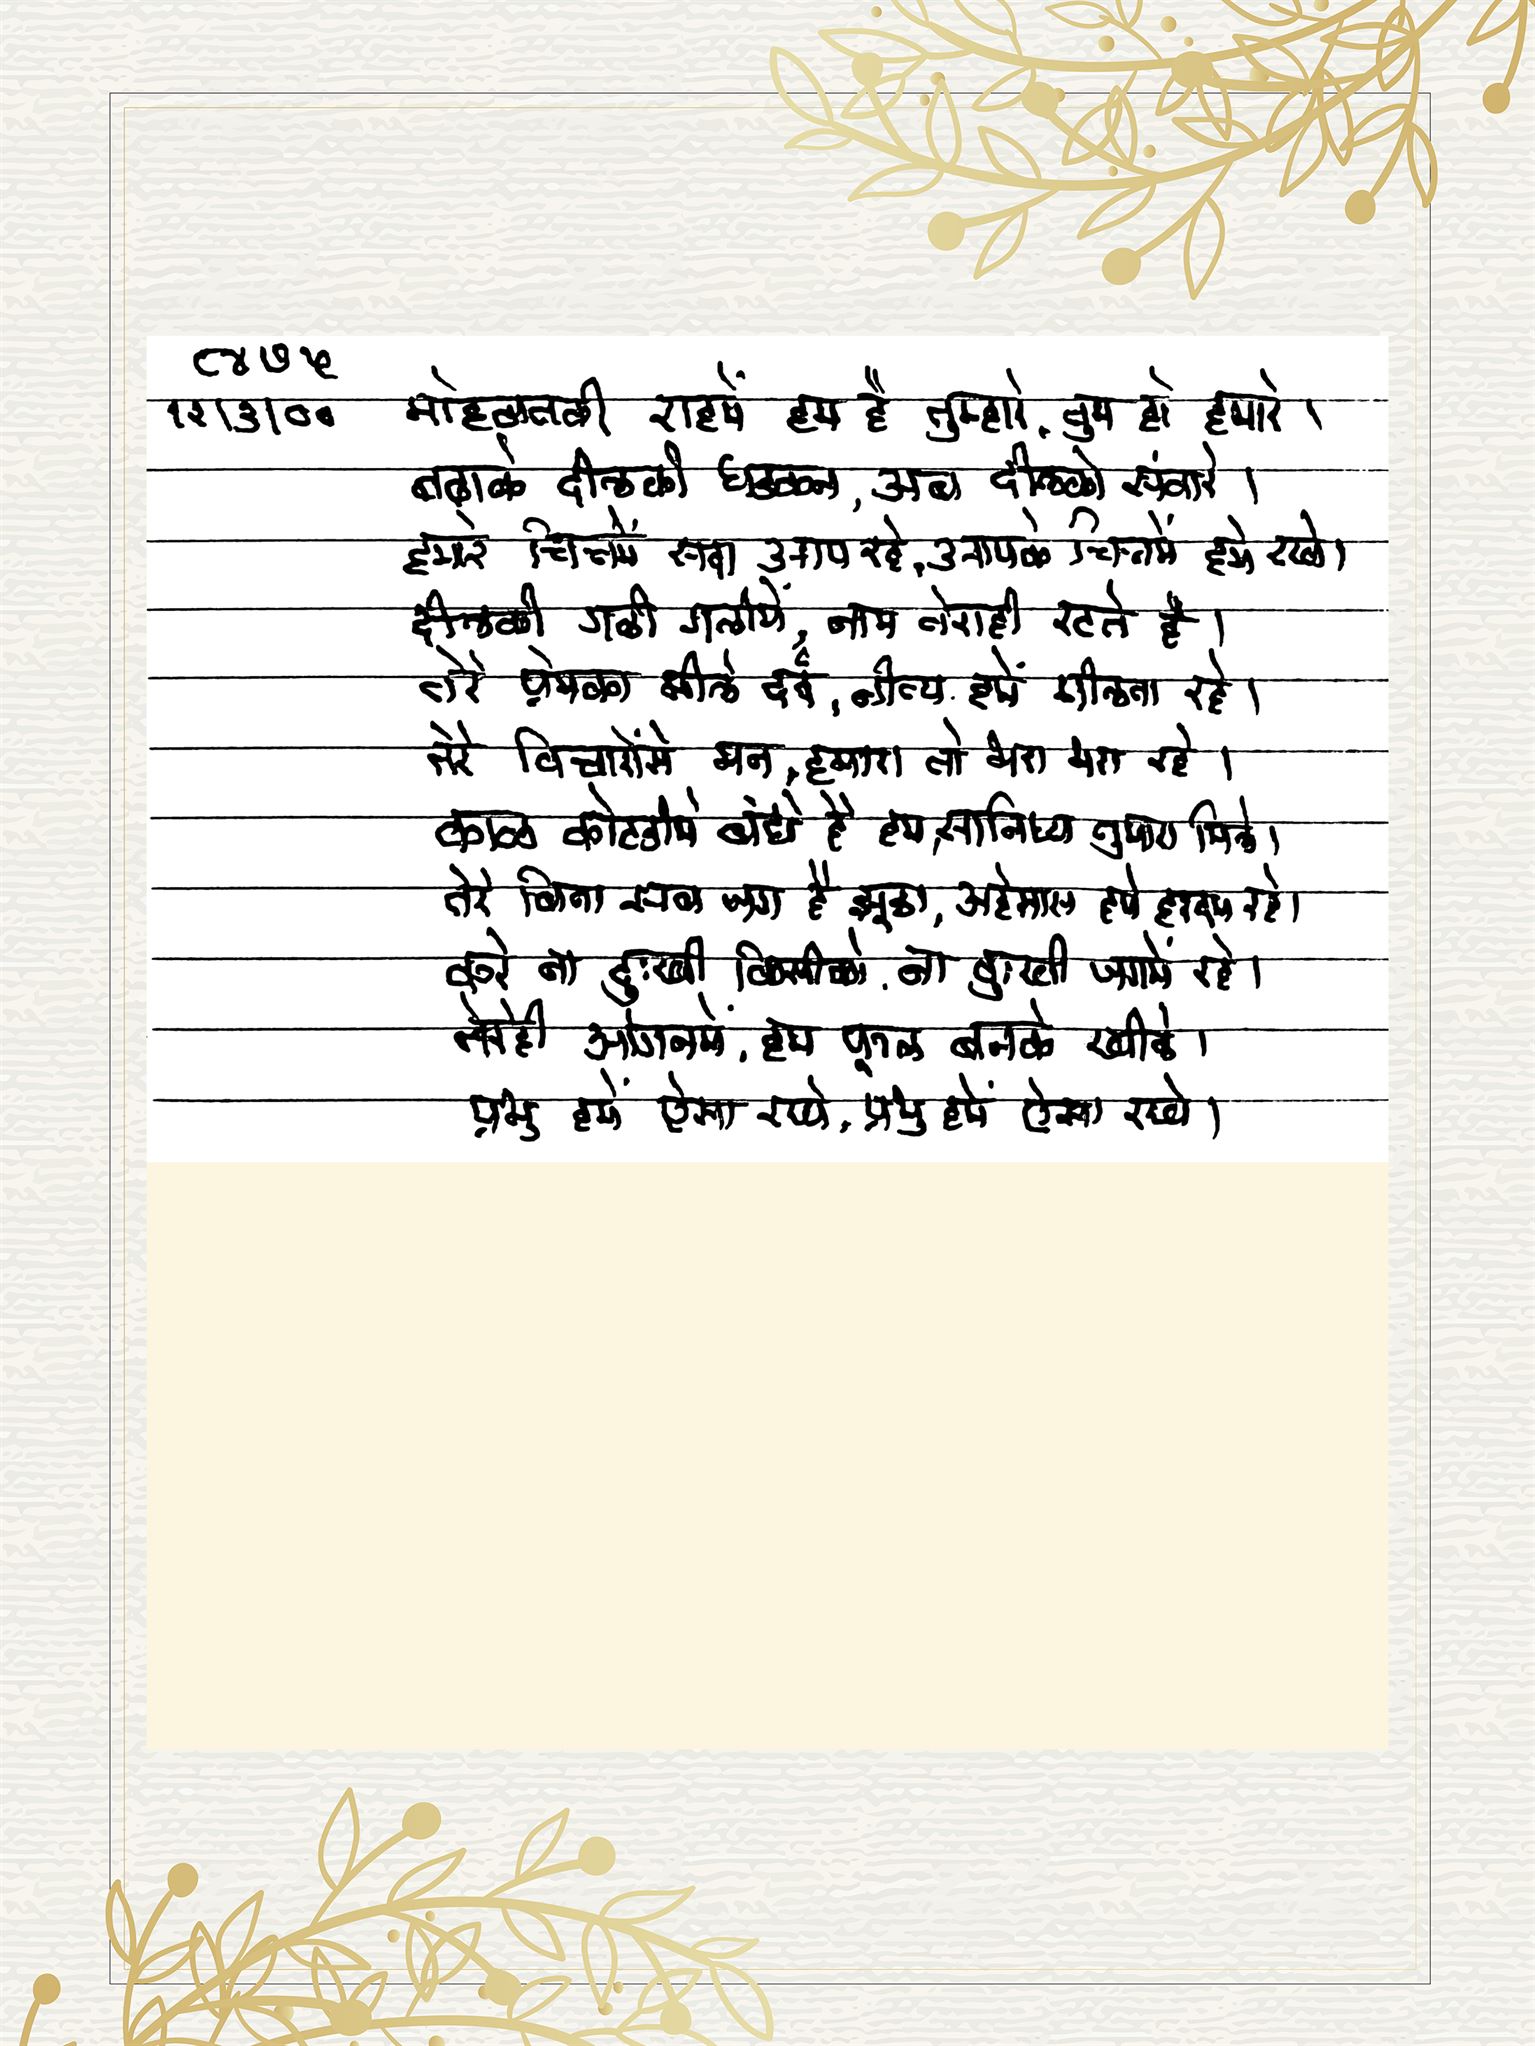 ८४७५
१२/३/००
मोहब्बतकी राहमें हम है तुम्हारे, तुम हो हमारे ।
बढ़ाके दीलकी धड़कन, अब दीलको संवारे ।
हमारे चित्तमें सदा आप रहे, आपके चित्तमें हमे रखे।
दीलकी गली गलीमें, नाम तेराही रटते है ।
तेरे प्रेमका मीले दर्द, नीत्य हमें मीलता रहे ।
तेरे विचारोंमे मन, हमारा तो भरा भरा रहे ।
काल कोटडीमे बंधे है हम, सानिध्य तुमारा मिले।
तेरे बिना सब जग है झूठा, अहेसास हमे हरदम रहे।
करे ना दुःखी किसीको, ना दुःखी जगमें रहे ।
तेरेही आंगनमें, हम फूल बनके खीले ।
प्रभु हमें ऐसा रखे, प्रभु हमें ऐसा रखे ।